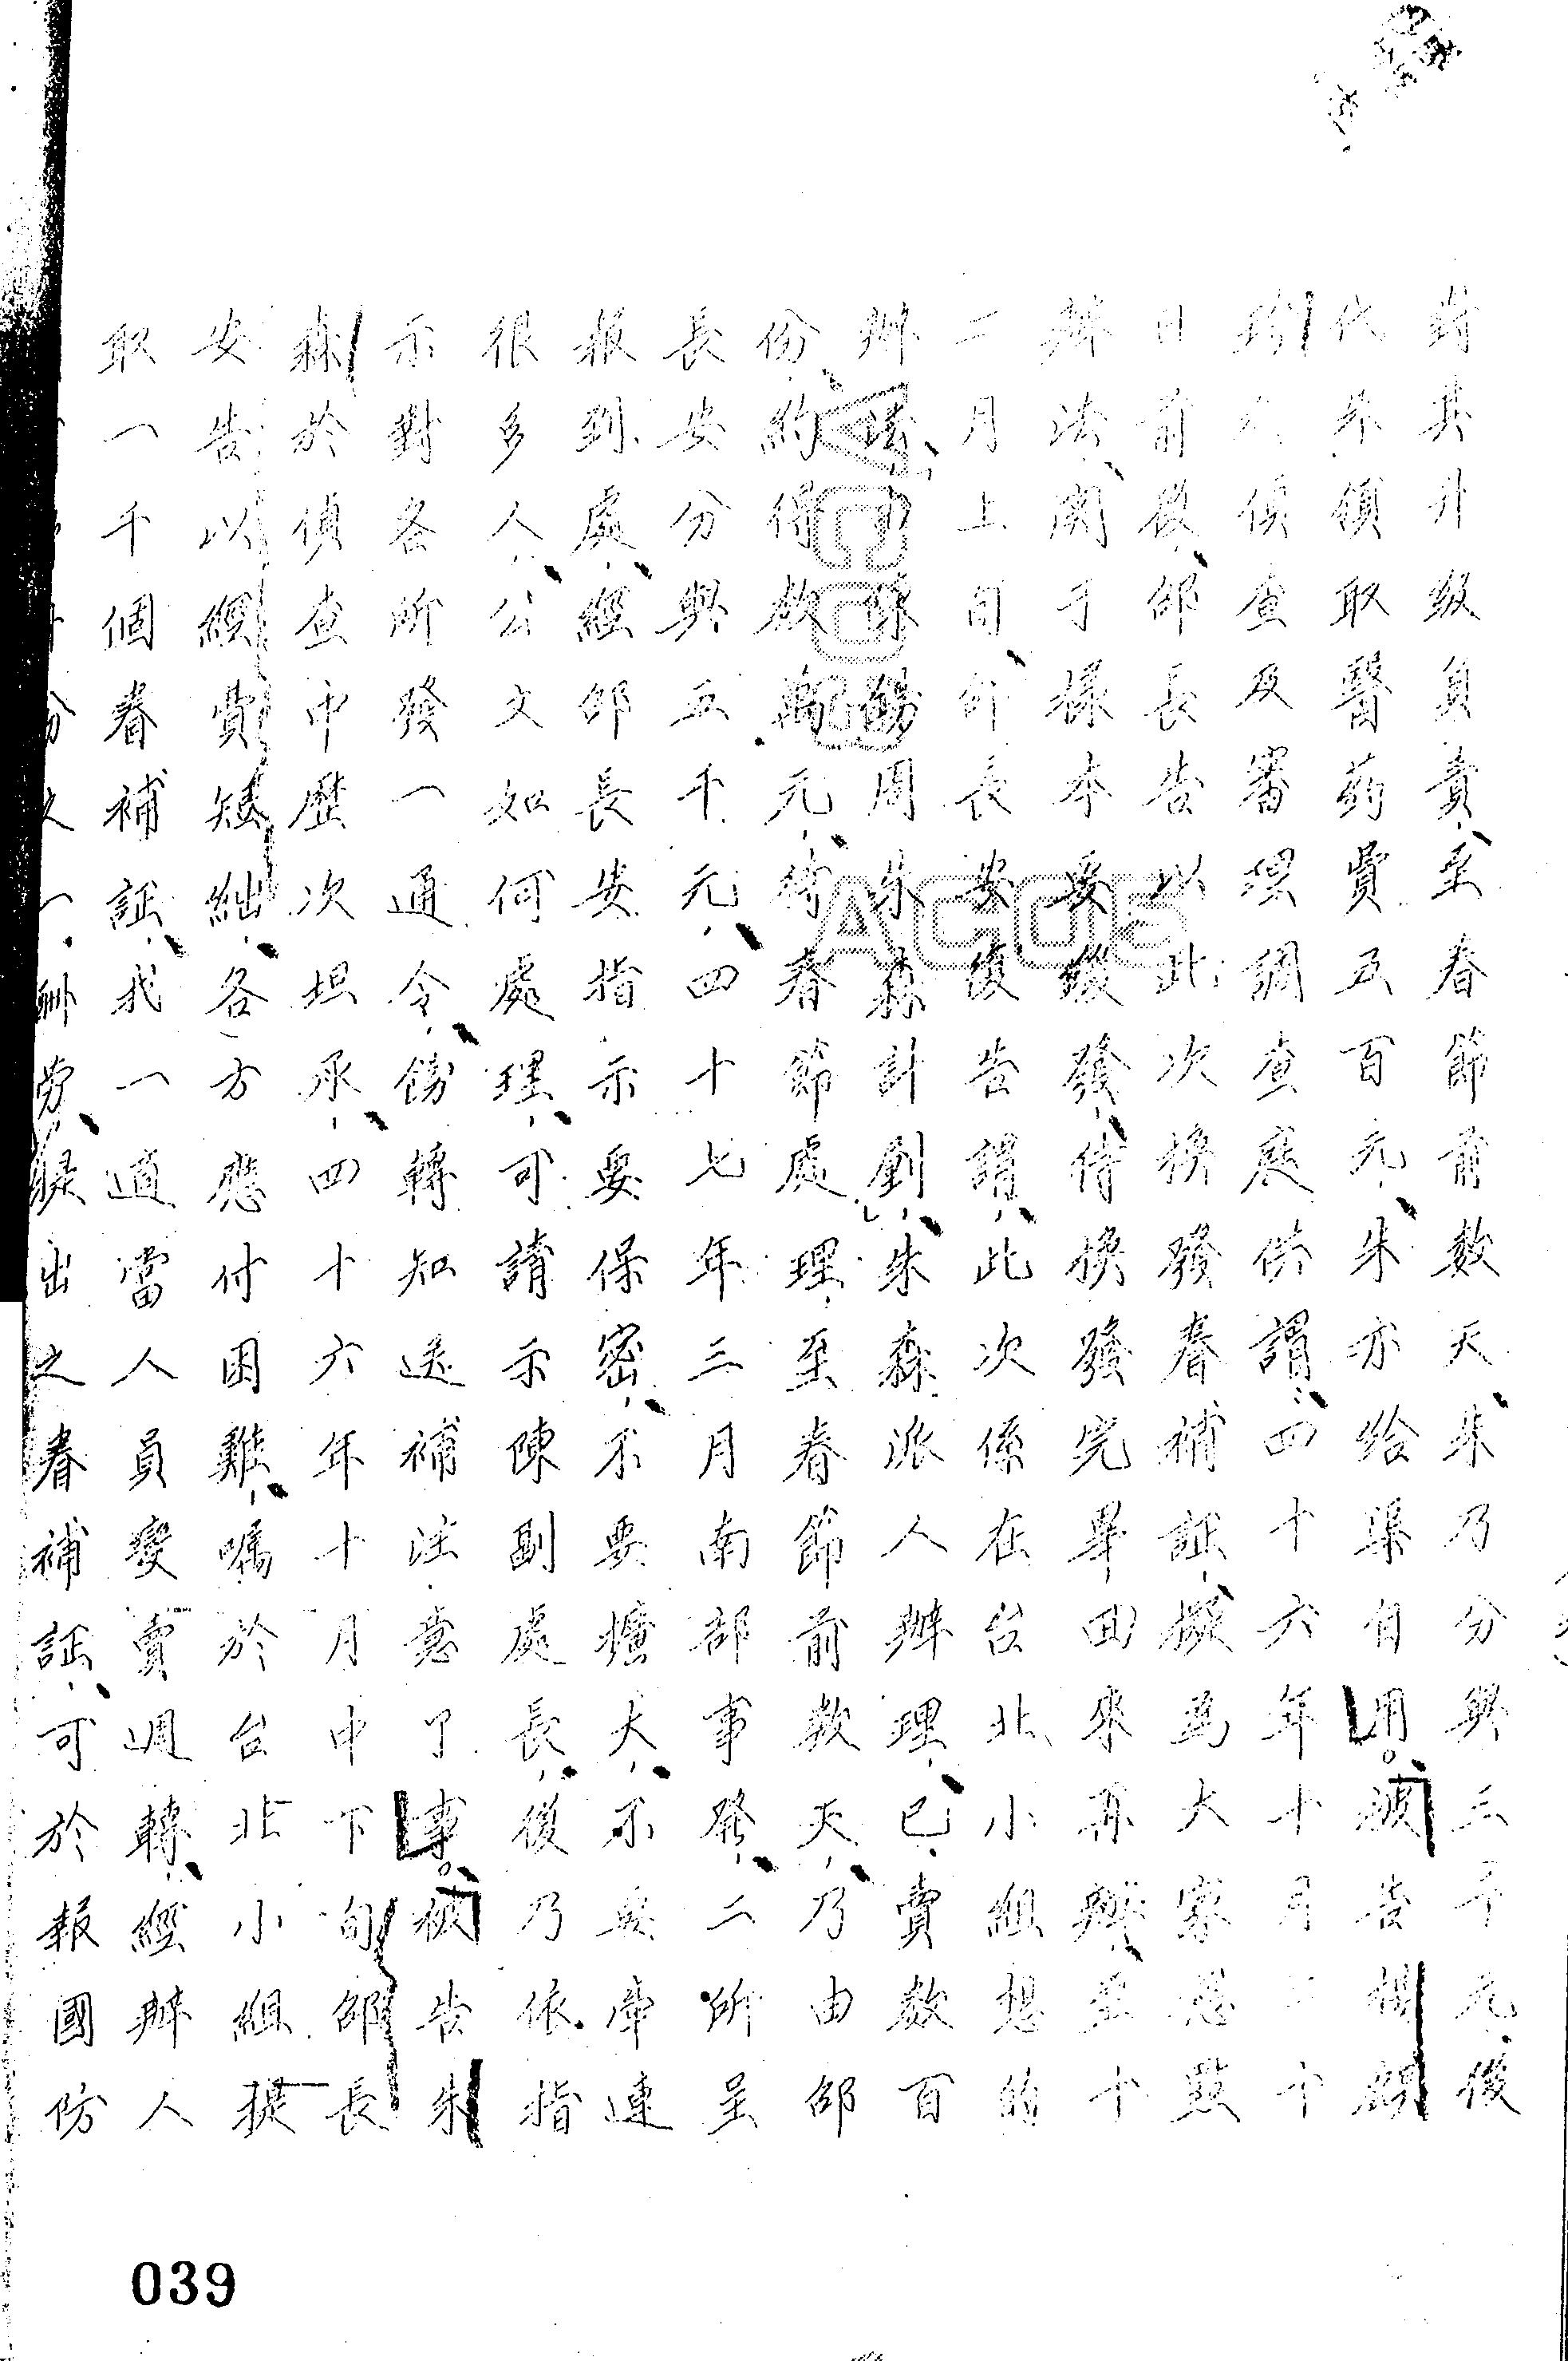 封其升級負責、至春節前數天、朱乃分與三千元、後
代亦領取醫葯費五百元、朱亦給渠自用。被告楊
於偵查及審理調查庭供謂、四十六年十月二十
日前後、邵長告以此次換發眷補証、擬為大家想點
辦法、關于樣本要緩發、待換發完畢回來再辦、至十
二月上旬、邵長安復告謂、此次係在台北小組想的
辦法、周朱森計劃、朱森派人辦理、已賣數百
份、約得款元、待春節處理、至春節前數天、乃由邵
長安分與五千元、四十七年三月南部事發、二所呈
報到處、經邵長安指示要保密、不要擴大、不要牽連
很多人、公文如何處理、可請示陳副處長、後乃依指
示對各所發一通令、飭轉知送補注意了事。被告朱
森於偵查中歷次坦承、四十六年十月中下旬邵長
安告以經費短絀、各方應付困難、囑於台北小組提
取一千個眷補証、我一適當人員變賣週轉、經辦人
份之一酬勞、騐出之眷補証、可於報國防
039